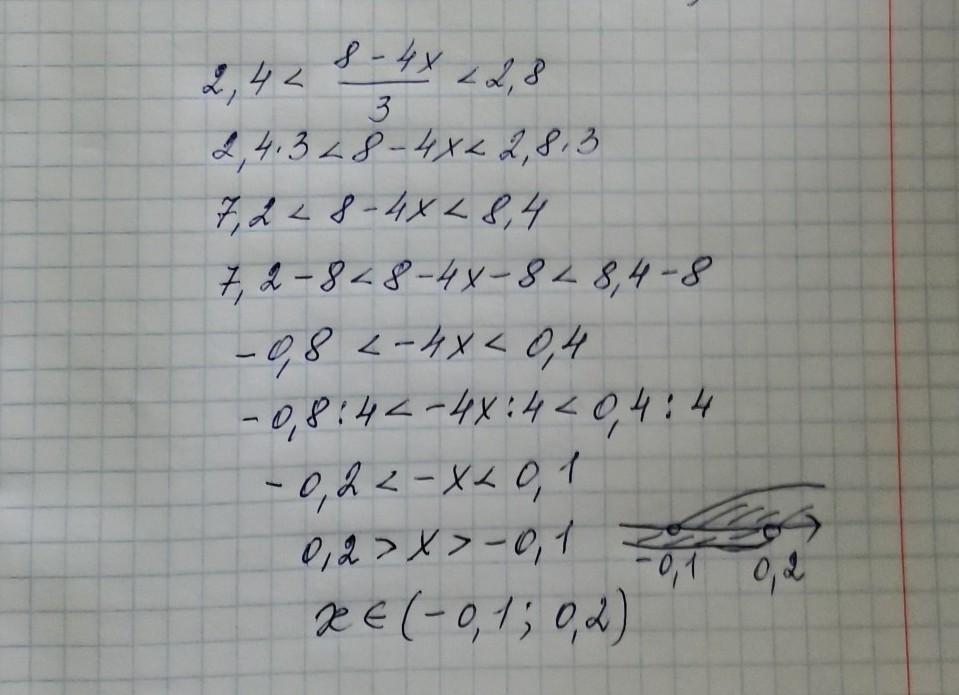 2,4 < (8 - 4x)/3 < 2,8
2,4·3 < 8 - 4x < 2,8·3
7,2 < 8 - 4x < 8,4
7,2 - 8 < 8 - 4x - 8 < 8,4 - 8
-0,8 < -4x < 0,4
-0,8 : 4 < -4x : 4 < 0,4 : 4
-0,2 < -x < 0,1
0,2 > x > -0,1
-0,1 0,2
x ∈ (-0,1; 0,2)